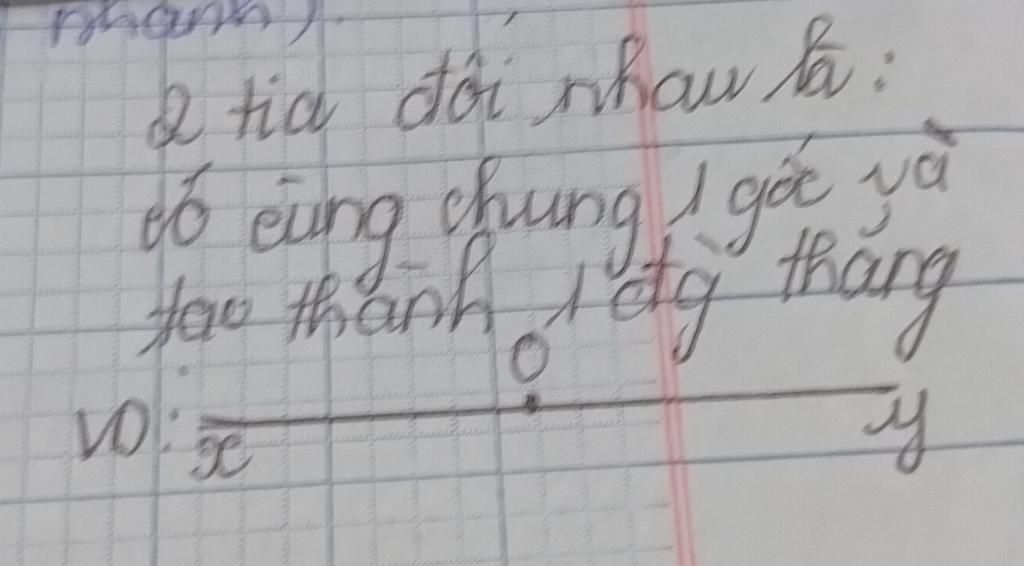 nhanh)
2 tia đối nhau là:
có cùng chung 1 gốc và
tạo thành 1 đtg thẳng
O
VD: x y